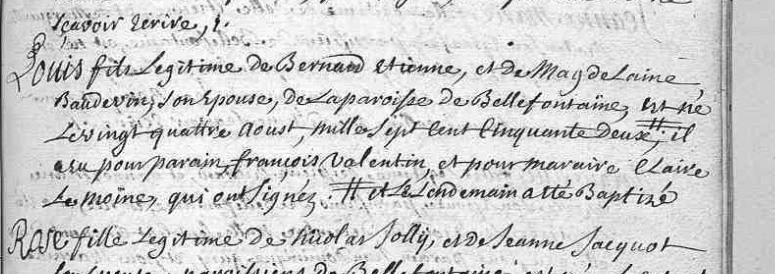 sçavoir Ecrire, ;.
Louis fils Legitime de Bernard Etienne, et de Magdelaine
Baudevin, son Epouse, de La paroisse de Bellefontaine, est né
Le vingt quattre Aoust, mille sept cent cinquante deux, # il
a eu pour parain, françois valentin, et pour maraire Claire
Le moine, qui ont signéz. # et Le Lendemain a été Baptizé
Rose fille Legitime de Nicolas Jolly, et de Jeanne Jacquot
son Epouse, paroissiens de Bellefontaine, est né